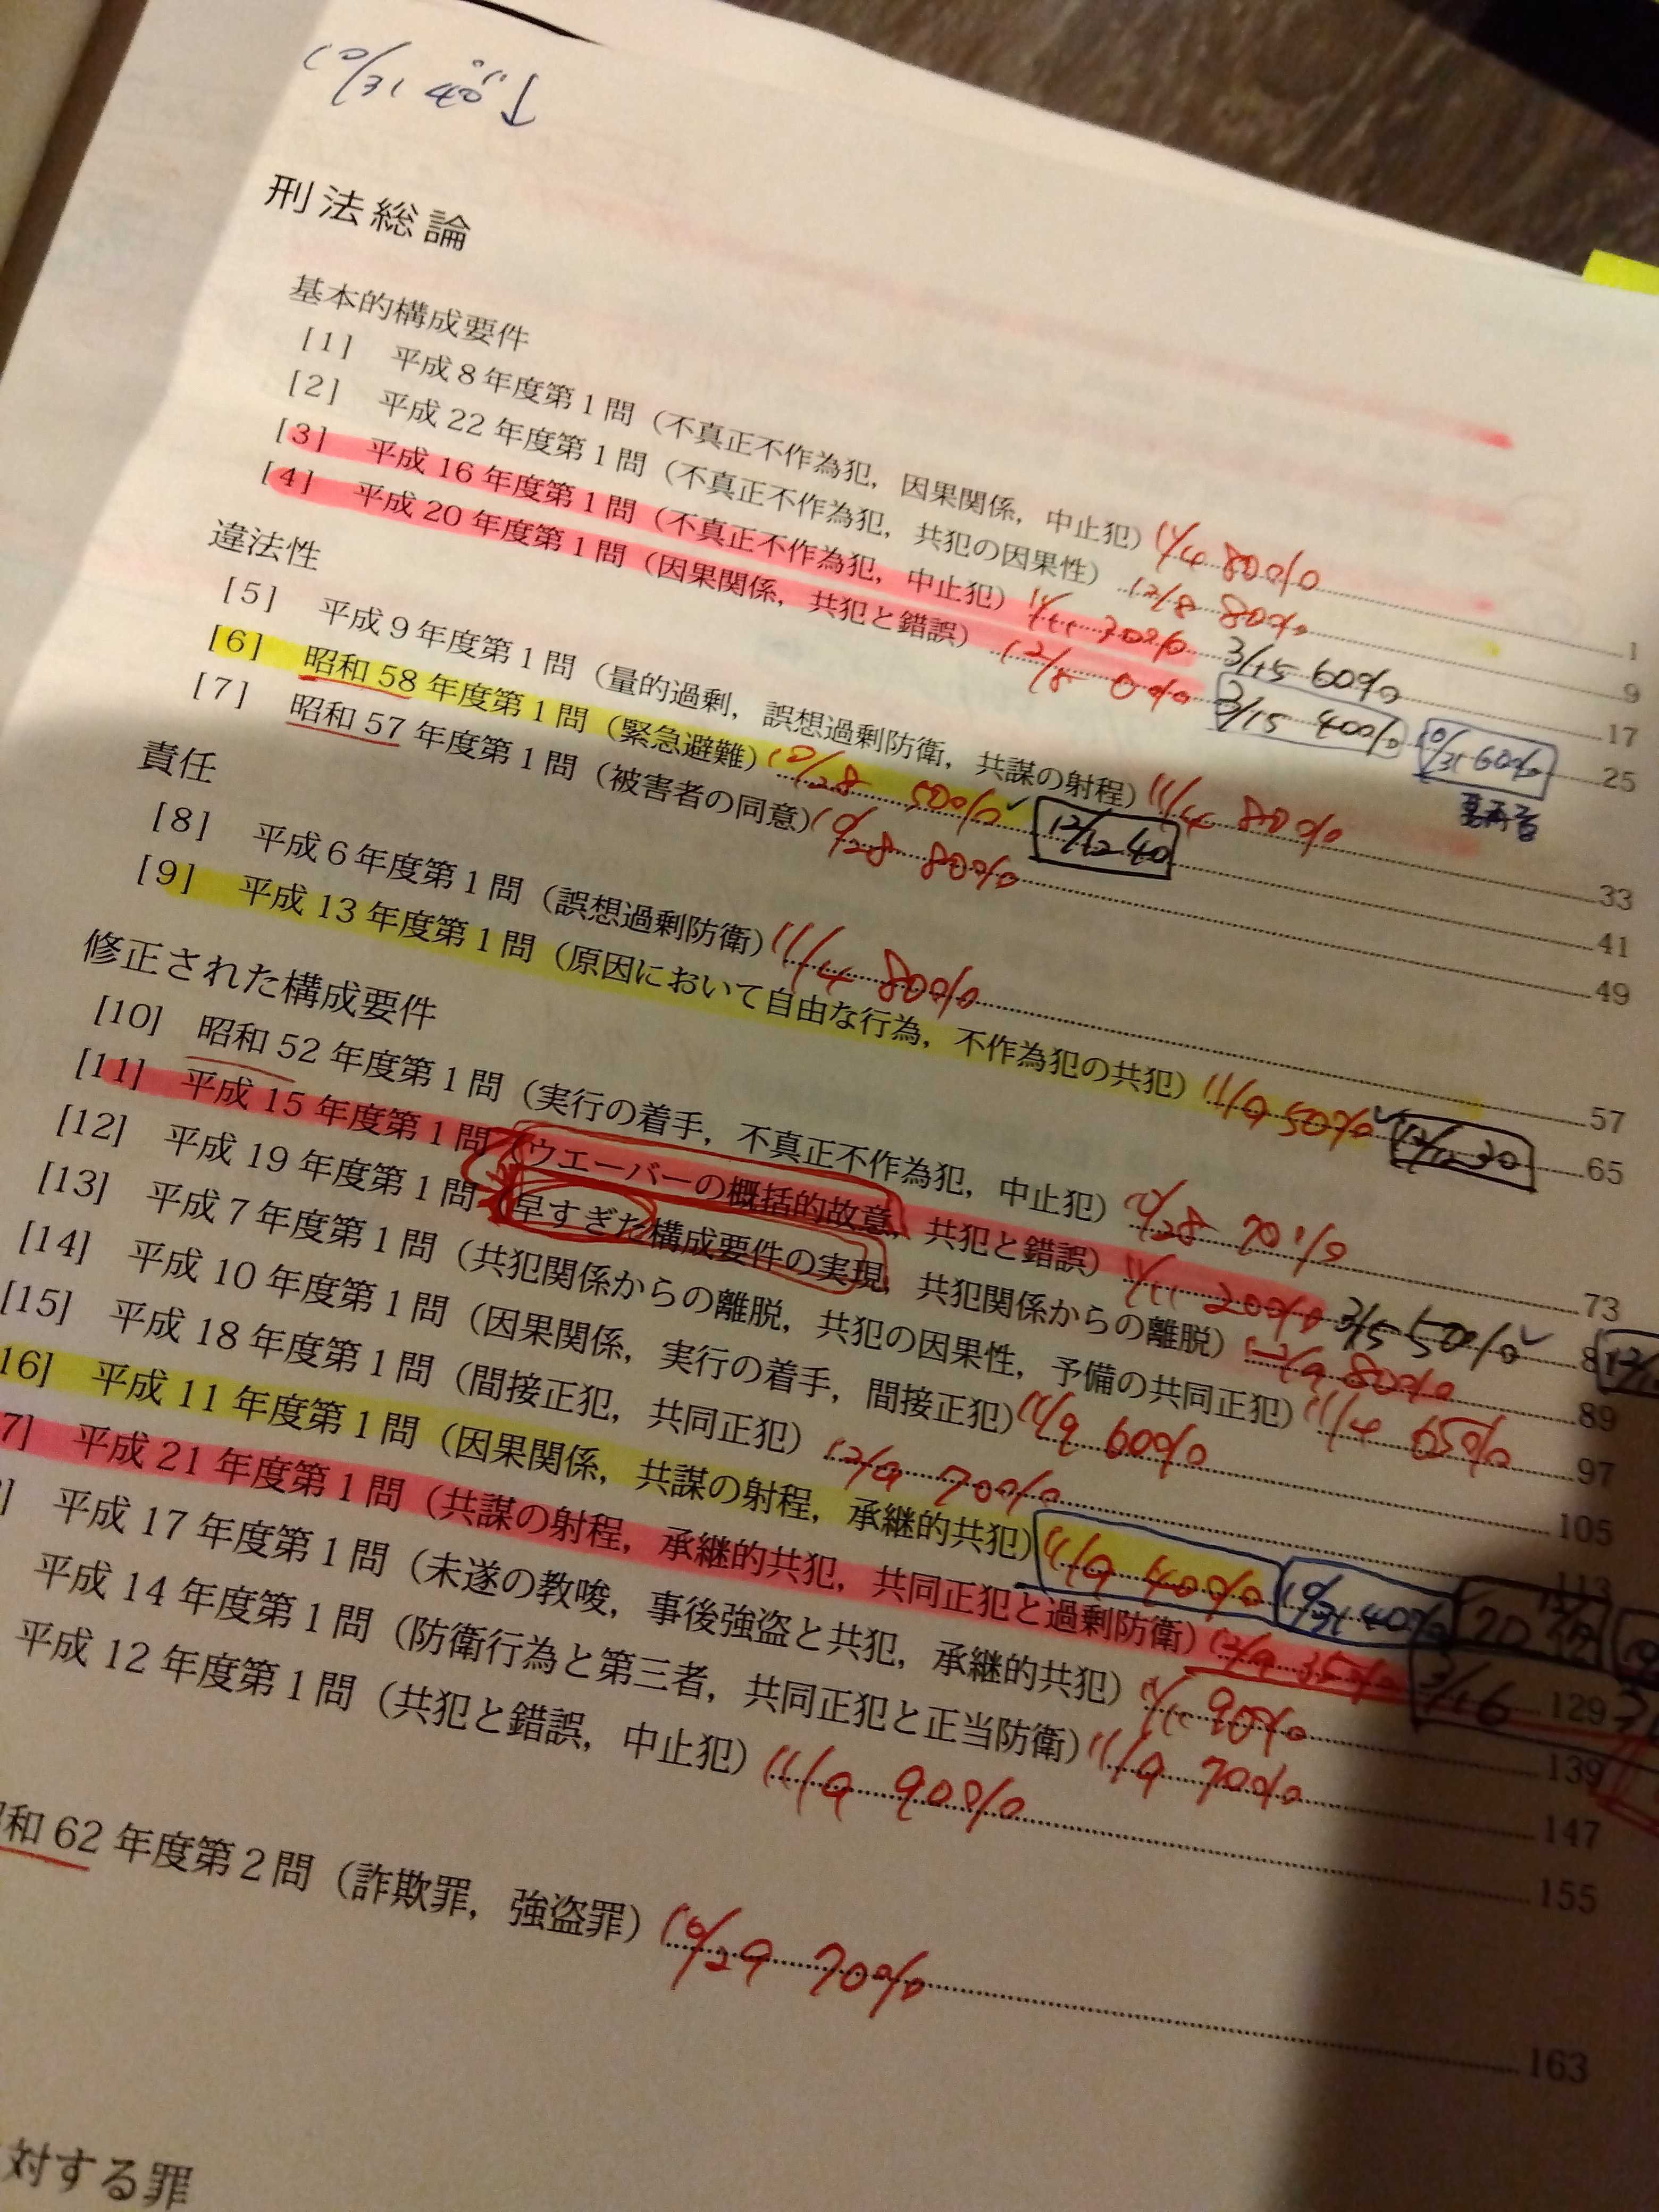 10/31 40
刑法総論
基本的構成要件
[1] 平成8年度第1問（不真正不作為犯，因果関係，中止犯） 11/4 80% 1
[2] 平成22年度第1問（不真正不作為犯，共犯の因果性） 12/8 80% 9
[3] 平成16年度第1問（不真正不作為犯，中止犯） 11/11 30% 3/15 60% 17
[4] 平成20年度第1問（因果関係，共犯と錯誤） 12/8 0% 3/15 40% 10/31 60% 25
違法性
[5] 平成9年度第1問（量的過剰，誤想過剰防衛，共謀の射程） 11/4 80% 33
[6] 昭和58年度第1問（緊急避難） 10/28 50% 12/12 40 41
[7] 昭和57年度第1問（被害者の同意） 10/28 80% 49
責任
[8] 平成6年度第1問（誤想過剰防衛） 11/4 80% 57
[9] 平成13年度第1問（原因において自由な行為，不作為犯の共犯） 11/9 50% 12/12 30 65
修正された構成要件
[10] 昭和52年度第1問（実行の着手，不真正不作為犯，中止犯） 10/28 70% 73
[11] 平成15年度第1問（ウエーバーの概括的故意，共犯と錯誤） 11/11 20% 3/15 50% 8
[12] 平成19年度第1問（早すぎた構成要件の実現，共犯関係からの離脱） 12/9 80% 89
[13] 平成7年度第1問（共犯関係からの離脱，共犯の因果性，予備の共同正犯） 11/4 65% 97
[14] 平成10年度第1問（因果関係，実行の着手，間接正犯） 11/9 60% 105
[15] 平成18年度第1問（間接正犯，共同正犯） 12/9 70% 113
16] 平成11年度第1問（因果関係，共謀の射程，承継的共犯） 11/9 40% 10/31 40% 20
7] 平成21年度第1問（共謀の射程，承継的共犯，共同正犯と過剰防衛） 12/9 35% 3/16 129
] 平成17年度第1問（未遂の教唆，事後強盗と共犯，承継的共犯） 11/11 90% 139
平成14年度第1問（防衛行為と第三者，共同正犯と正当防衛） 11/9 70% 147
平成12年度第1問（共犯と錯誤，中止犯） 11/9 90% 155
和62年度第2問（詐欺罪，強盗罪） 10/29 70% 163
対する罪